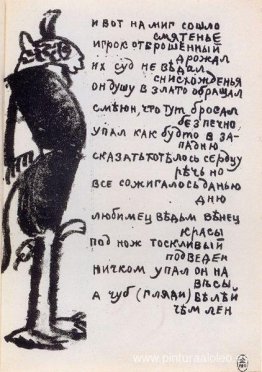 и вот на миг сошло
смятенье
игрок отброшенный
дрожал
их суд не вѣдал
снисхожденья
он душу в злато обращал
смѣюн, что тут бросал
безпечно,
упал как будто в за-
падню
сказать хотѣлось сердцу
рѣчь но
все сожигалось данью
дню
любимец вѣдьм вѣнец
красы
под нож тоскливый
подведен
ничком упал он на
вѣсы
а чуб (гляди) бѣлѣй
чѣм лен
www.pinturaaloleo.eu